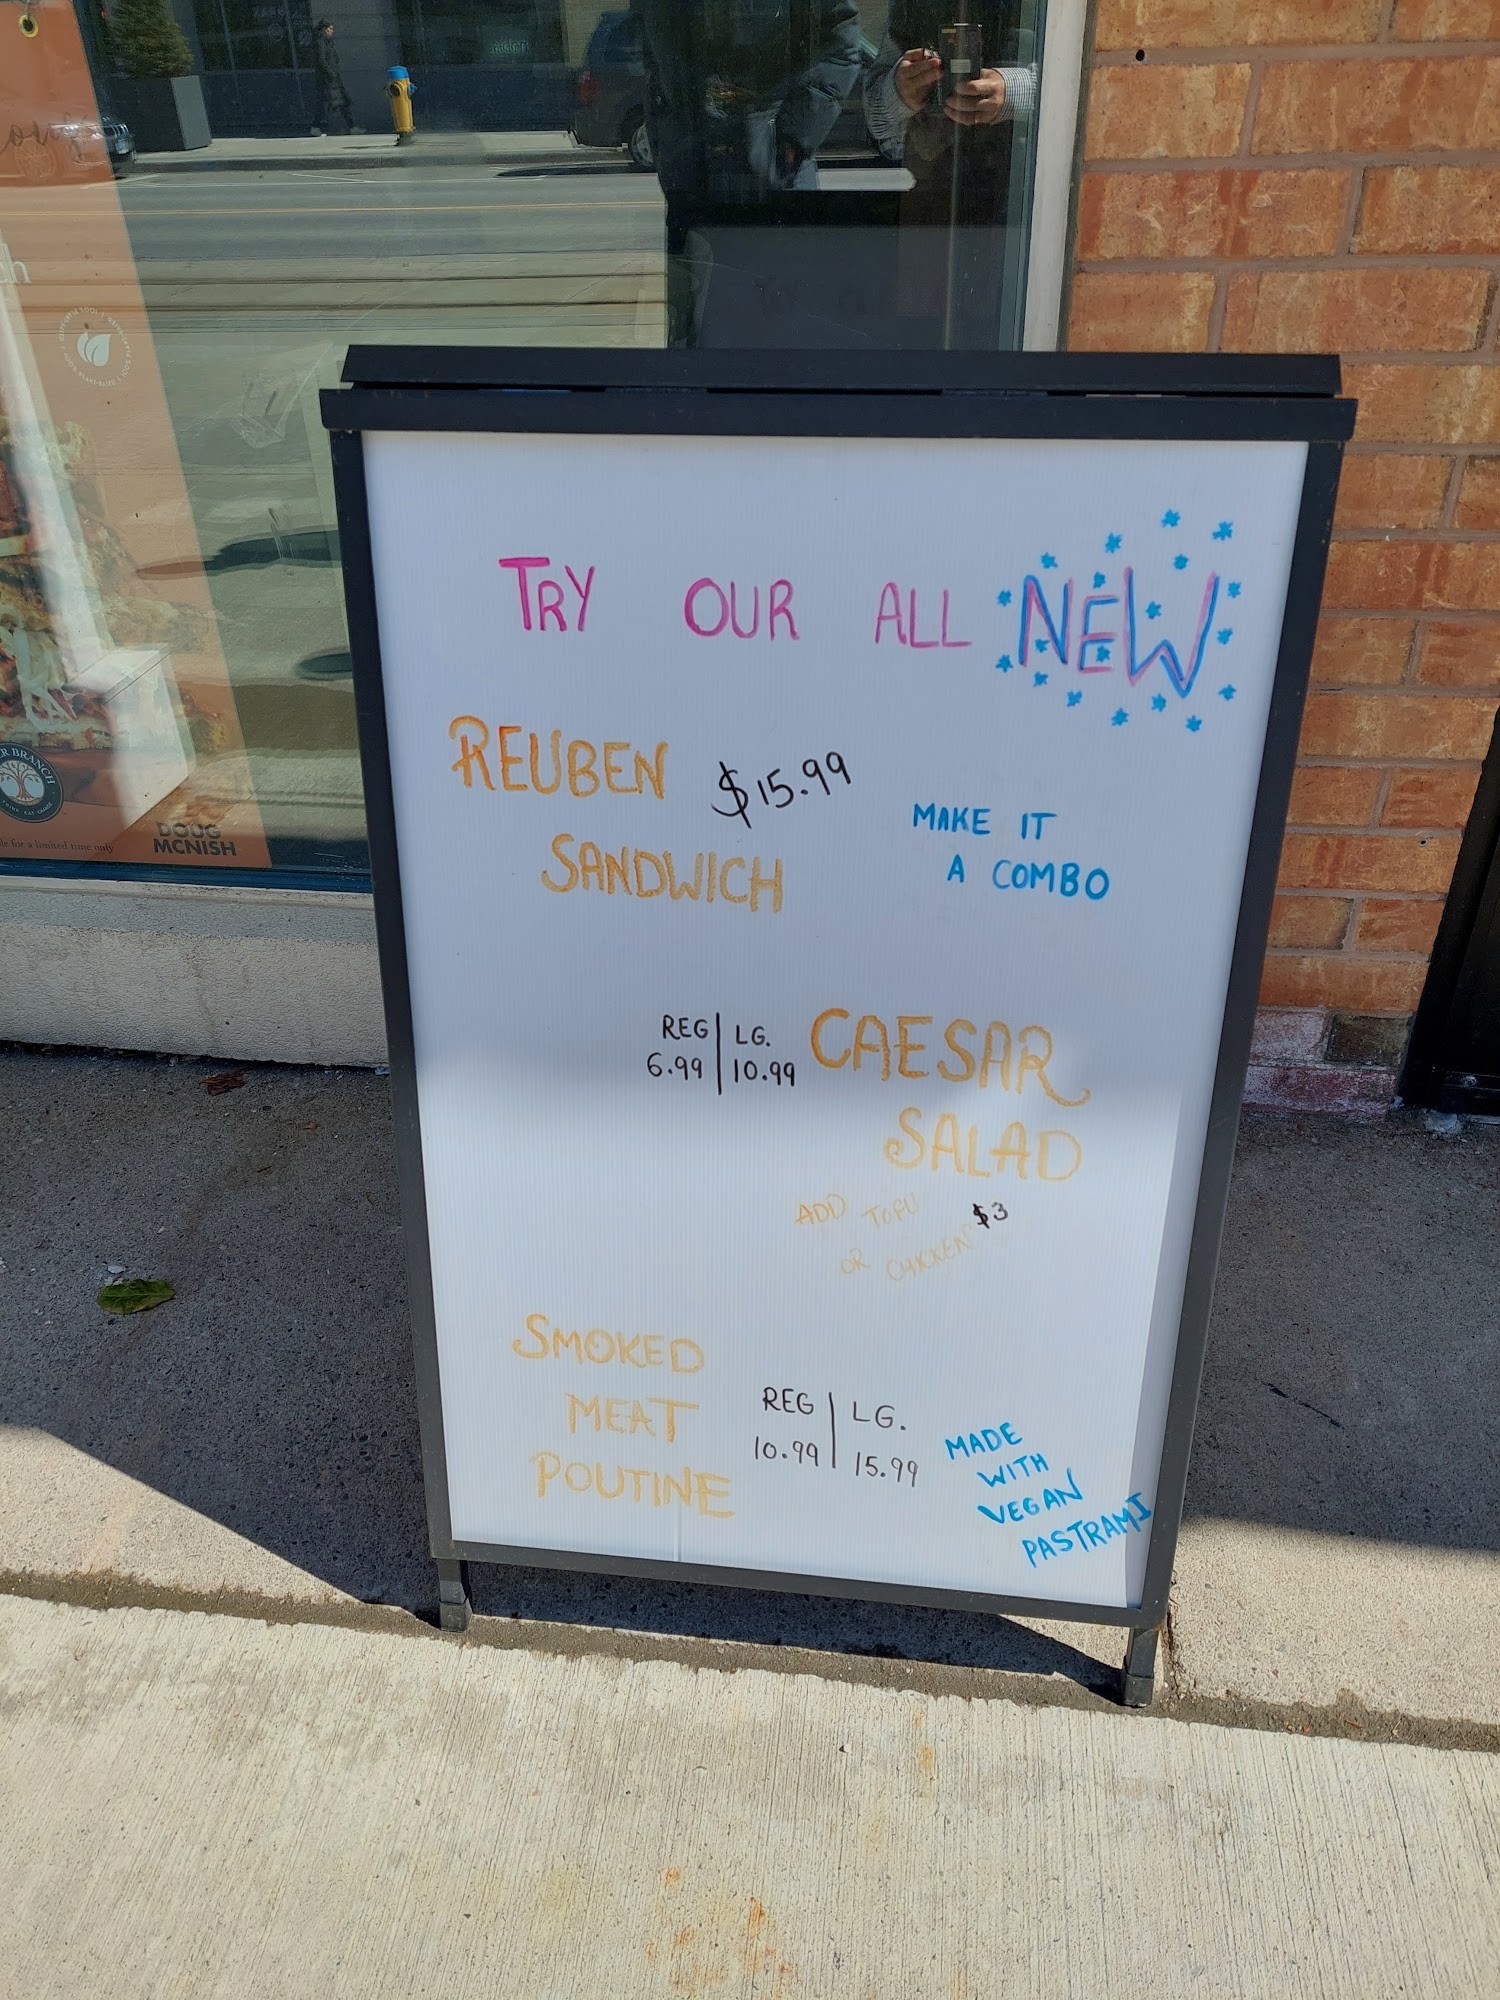 TRY OUR ALL NEW
REUBEN $15.99
SANDWICH
MAKE IT
A COMBO
REG | LG.
6.99 | 10.99
CAESAR
SALAD
ADD TOFU $3
OR CHICKEN
SMOKED
MEAT
POUTINE
REG | LG.
10.99 | 15.99
MADE
WITH
VEGAN
PASTRAMI
R BRANCH
DOUG
MCNISH
le for a limited time only